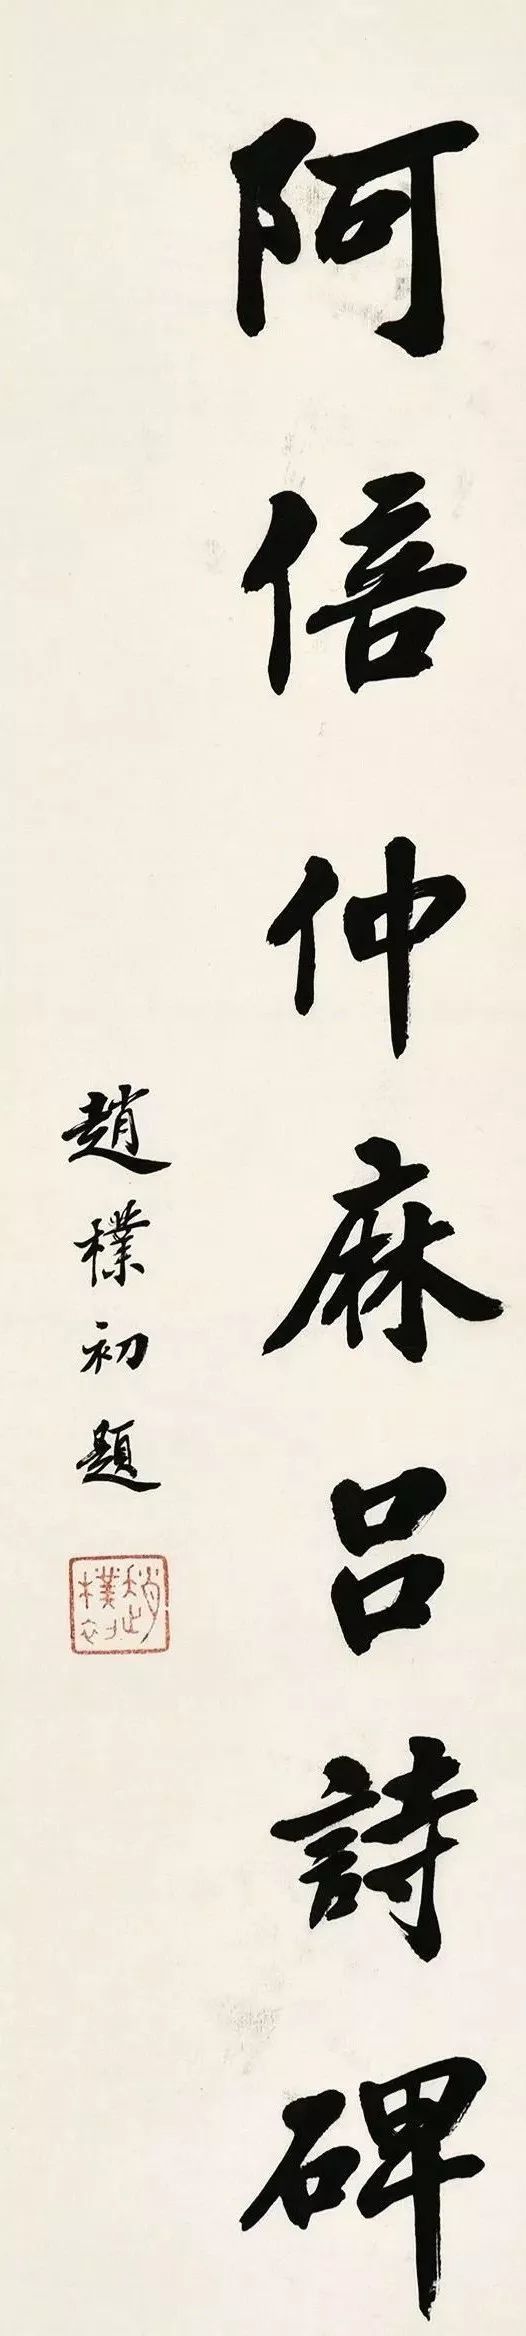 阿倍仲麻吕詩碑
趙樸初題
趙樸初